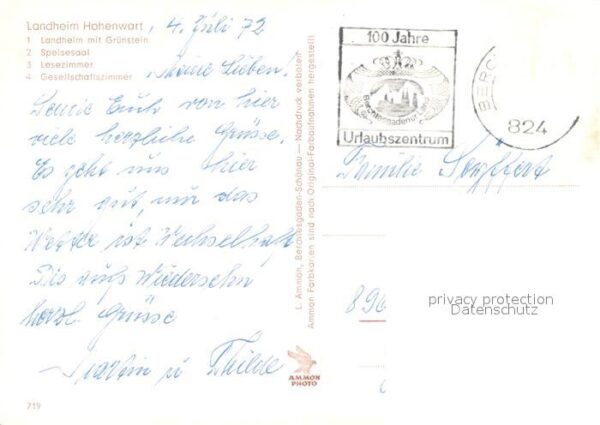 Landheim Hohenwart
1 Landheim mit Grünstein
2 Speisesaal
3 Lesezimmer
4 Gesellschaftszimmer
4. Juli 72
Meine Lieben!
Sende Euch von hier
viele herzliche Grüsse.
Es geht uns hier
sehr gut, nur das
Wetter ist Wechselhaft
Bis aufs Wiedersehn
herzl. Grüsse
u Thilde
719
L. Ammon, Berchtesgaden-Schönau — Nachdruck verboten
Ammon Farbkarten sind nach Original-Farbaufnahmen hergestellt
AMMON
PHOTO
100 Jahre
Berchtesgadener Land
Urlaubszentrum
BERC
824
Familie Seyffert
896
privacy protection
Datenschutz